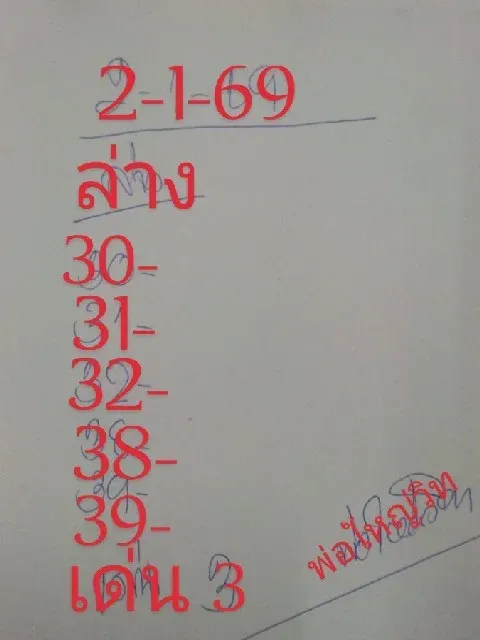 2-1-69
ล่าง
30-
31-
32-
38-
39-
เด่น 3
พ่อใหญ่วิท